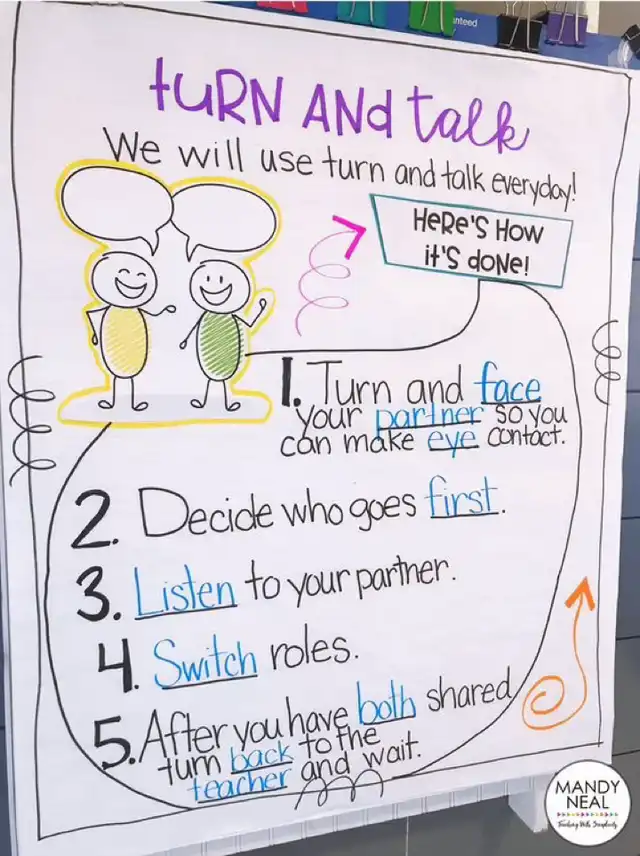 anteed
tURN ANd talk
We will use turn and talk everyday!
HeRe's How
it's doNe!
1. Turn and face
your partner so you
can make eye contact.
2. Decide who goes first.
3. Listen to your partner.
4. Switch roles.
5. After you have both shared
turn back to the
teacher and wait.
MANDY
NEAL
Teaching With Simplicity